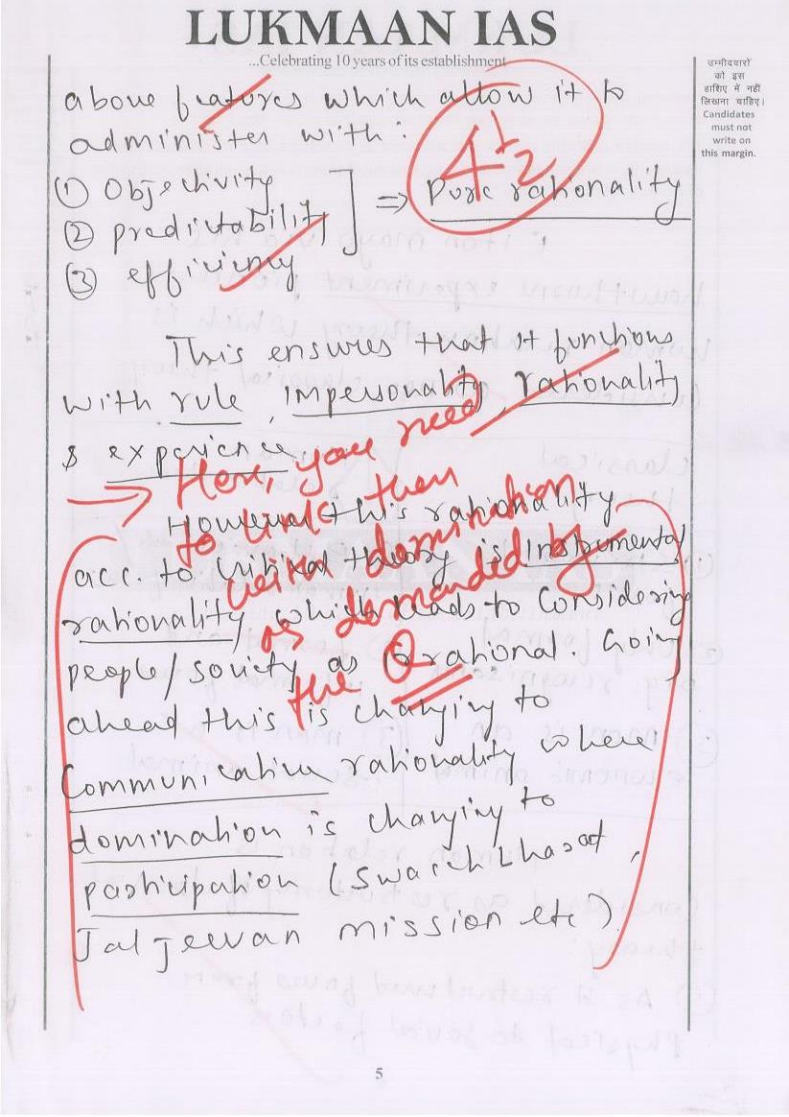 LUKMAAN IAS
...Celebrating 10 years of its establishment
उम्मीदवारों
को इस
हाशिए में नहीं
लिखना चाहिए।
Candidates
must not
write on
this margin.
above features which allow it to
administer with:
4 1/2
① Objectivity
② predictability
③ efficiency
=> Pure rationality
This ensures that it functions
with rule, impersonality, rationality
& experience.
Here, you need
to link then
with domination
as demanded by
the Q
However this rationality
acc. to critical theory is instrumental
rationality, which leads to considering
people/society as rational. Going
ahead this is changing to
Communication rationality where
domination is changing to
participation (Swachh Bharat,
Jal Jeevan mission etc).
5